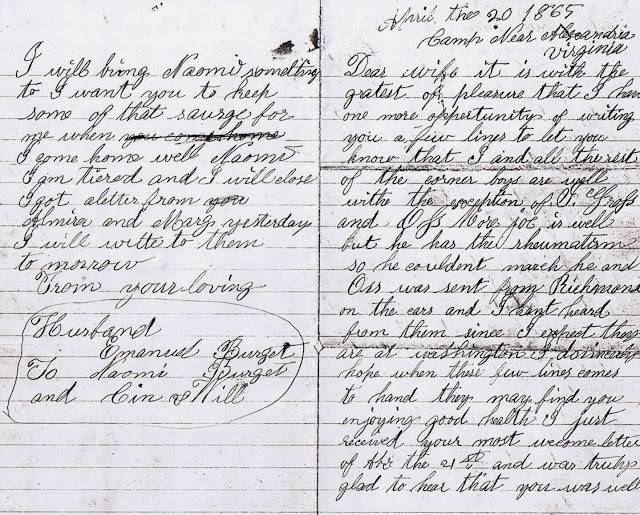 April the 20 1865
Camp Near Alexandria
virginia
Dear wife it is with the
gratest of pleasure that I have
one more opportunity of writing
you a few lines to let you
know that I and all the rest
of the corner boys are well
withe the exception of
and Joe is well
but he has the rheumatism
so he couldent march he and
Oss was sent from Richmond
on the cars and I hant heard
from them since I expect they
are at washington I
hope when these few lines comes
to hand they may find you
enjoying good health I just
received your most wecome letter
of the 21st and was truly
glad to hear that you was well
I will bring Naomi something
to I want you to keep
some of that saurge for
me when you come home
I come home well Naomi
I am tiered and I will close
I got aletter from you
Almira and Mary yesterday
I will write to them
to morrow
From your loving
Husband
Emanuel Burget
To Naomi Burget
and Cin & Will